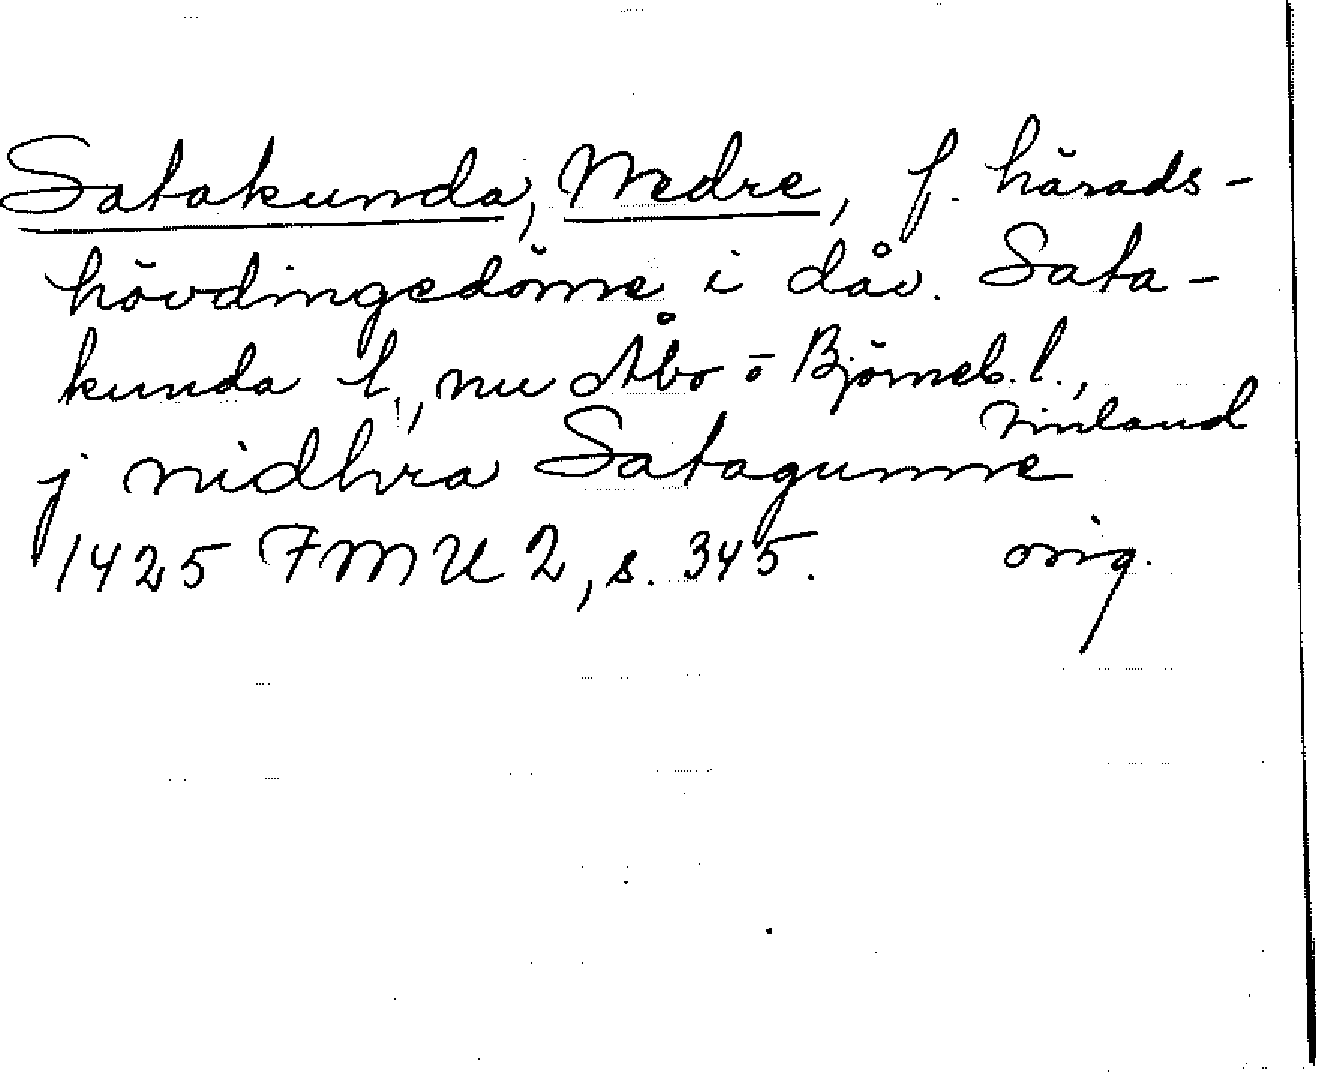 Satakunda, Nedre, f. härads-
hövdingedöme i dåv. Sata-
kunda l., nu Åbo-o Björneb. l.,
Finland
j nidhra Satagunne
1425 FMU 2, s. 345. orig.